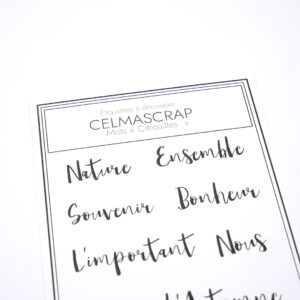 Etiquettes à découper
CELMASCRAP
Mots « Citrouilles »
Nature Ensemble
Souvenir Bonheur
L'important Nous
L'Automne